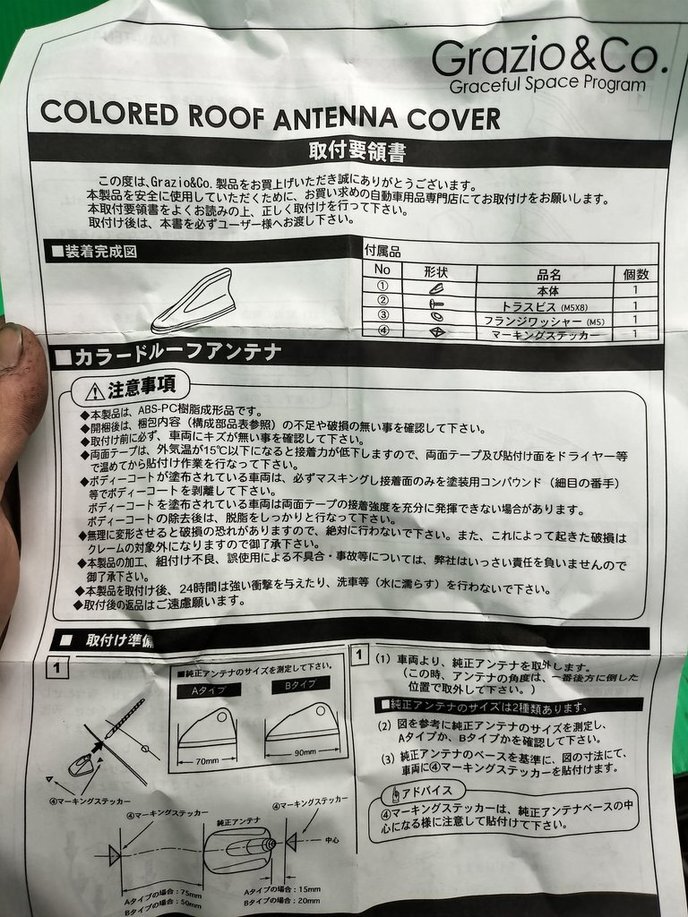 Grazio&Co.
Graceful Space Program
COLORED ROOF ANTENNA COVER
取付要領書
この度は、Grazio&Co. 製品をお買上げいただき誠にありがとうございます。
本製品を安全に使用していただくために、お買い求めの自動車用品専門店にてお取付けをお願いします。
本取付要領書をよくお読みの上、正しく取付けを行って下さい。
取付け後は、本書を必ずユーザー様へお渡し下さい。
■装着完成図
付属品
No 形状 品名 個数
① 本体 1
② トラスビス (M5X8) 1
③ フランジワッシャー (M5) 1
④ マーキングステッカー 1
■カラードルーフアンテナ
注意事項
◆本製品は、ABS-PC樹脂成形品です。
◆開梱後は、梱包内容（構成部品表参照）の不足や破損の無い事を確認して下さい。
◆取付け前に必ず、車両にキズが無い事を確認して下さい。
◆両面テープは、外気温が15℃以下になると接着力が低下しますので、両面テープ及び貼付け面をドライヤー等
で温めてから貼付け作業を行なって下さい。
◆ボディーコートが塗布されている車両は、必ずマスキングし接着面のみを塗装用コンパウンド（細目の番手）
等でボディーコートを剥離して下さい。
ボディーコートを塗布されている車両は両面テープの接着強度を充分に発揮できない場合があります。
ボディーコートの除去後は、脱脂をしっかりと行なって下さい。
◆無理に変形させると破損の恐れがありますので、絶対に行わないで下さい。また、これによって起きた破損は
クレームの対象外になりますので御了承下さい。
◆本製品の加工、組付け不良、誤使用による不具合・事故等については、弊社はいっさい責任を負いませんので
御了承下さい。
◆本製品を取付け後、24時間は強い衝撃を与えたり、洗車等（水に濡らす）を行わないで下さい。
◆取付後の返品はご遠慮願います。
■ 取付け準備
1
■純正アンテナのサイズを測定して下さい。
Aタイプ
Bタイプ
70mm
90mm
④マーキングステッカー
④マーキングステッカー
④マーキングステッカー
純正アンテナ
中心
Aタイプの場合：75mm
Bタイプの場合：50mm
Aタイプの場合：15mm
Bタイプの場合：20mm
1
(1) 車両より、純正アンテナを取外します。
（この時、アンテナの角度は、一番後方に倒した
位置で取外して下さい。）
■純正アンテナのサイズは2種類あります。
(2) 図を参考に純正アンテナのサイズを測定し、
Aタイプか、Bタイプかを確認して下さい。
(3) 純正アンテナのベースを基準に、図の寸法にて、
車両に④マーキングステッカーを貼付けます。
アドバイス
④マーキングステッカーは、純正アンテナベースの中
心になる様に注意して貼付けて下さい。